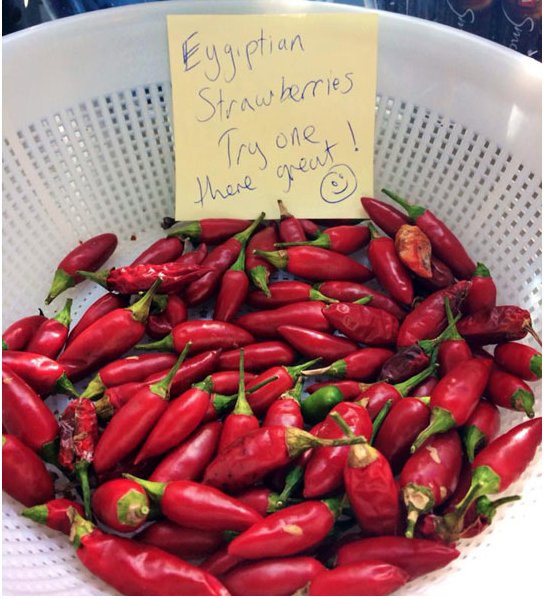 Eygiptian
Strawberries
Try one
there great!